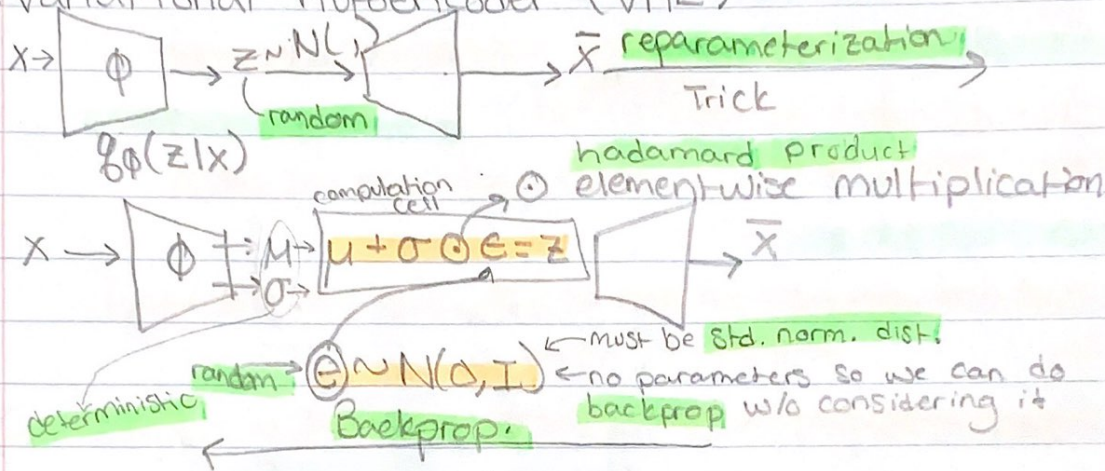 Variational Autoencoder (VAE)
X→ ϕ → z~N(,) → x̄ reparameterization
Trick
random
qϕ(z|x)
hadamard product
computation
cell
⊙ elementwise multiplication
X → ϕ → μ → μ + σ ⊙ ϵ = z → x̄
→ σ →
← must be std. norm. dist.
random → ϵ ~ N(0, I) ← no parameters so we can do
backprop w/o considering it
deterministic
Backprop.